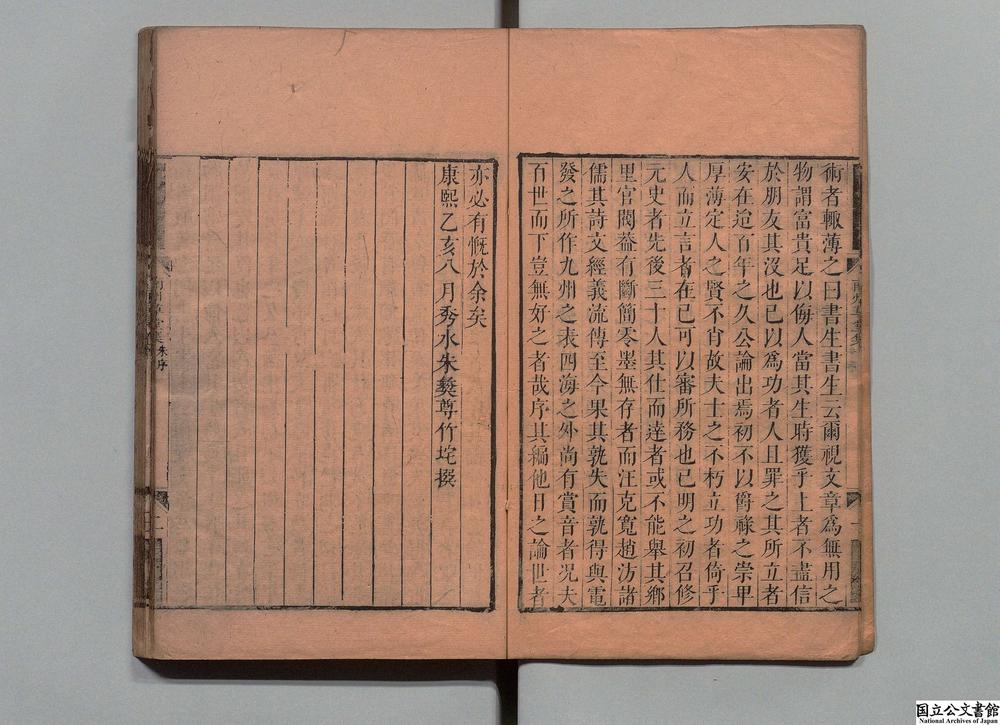 術者輙薄之曰書生書生云爾視文章為無用之
物謂富貴足以侮人當其生時獲乎上者不盡信
於朋友其沒也已以為功者人且罪之其所立者
安在迨百年之久公論出焉初不以爵祿之崇卑
厚薄定人之賢不肖故夫士之不朽立功者倚乎
人而立言者在己可以審所務也已明之初召修
元史者先後三十人其仕而達者或不能舉其鄉
里官閥蓋有斷簡零墨無存者而汪克寬趙汸諸
儒其詩文經義流傳至今果其孰失而孰得與電
發之所作九州之表四海之外尚有賞音者况夫
百世而下豈無好之者哉序其編他日之論世者
亦必有慨於余矣
康熙乙亥八月秀水朱彝尊竹垞撰
朱序
二
国立公文書館
National Archives of Japan